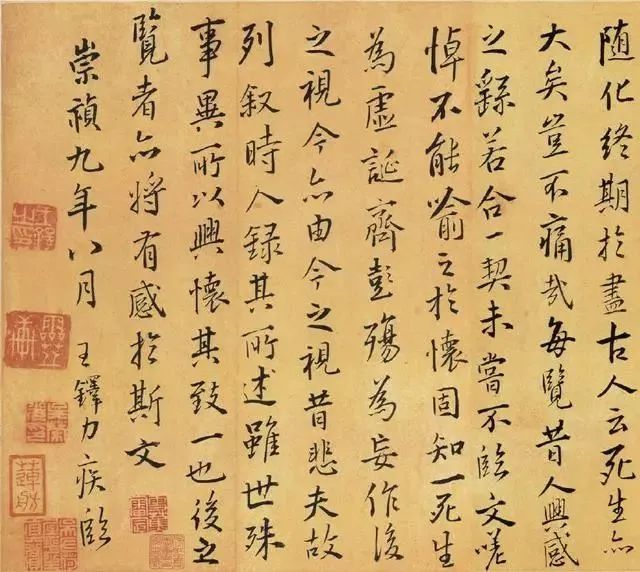 随化終期於盡古人云死生亦
大矣豈不痛哉每覽昔人興感
之繇若合一契未嘗不臨文嗟
悼不能喻之於懷固知一死生
為虛誕齊彭殤為妄作後
之視今亦由今之視昔悲夫故
列叙時人錄其所述雖世殊
事異所以興懷其致一也後之
覽者亦將有感於斯文
崇禎九年八月 王鐸力疾臨